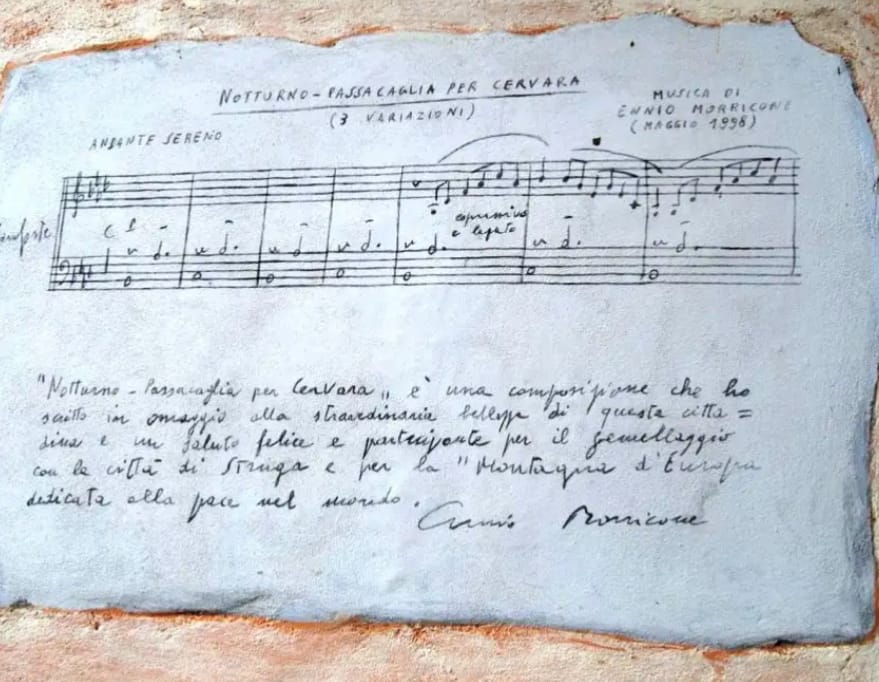 NOTTURNO - PASSACAGLIA PER CERVARA
(3 VARIAZIONI)
MUSICA DI
ENNIO MORRICONE
(MAGGIO 1998)
ANDANTE SERENO
espressivo
e legato
"Notturno - Passacaglia per Cervara„ è una composizione che ho
scritto in omaggio alla straordinaria bellezza di questa citta =
dina e un saluto felice e partecipante per il gemellaggio
con la città di Struga e per la "Montagna d'Europa
dedicata alla pace nel mondo.
Ennio Morricone